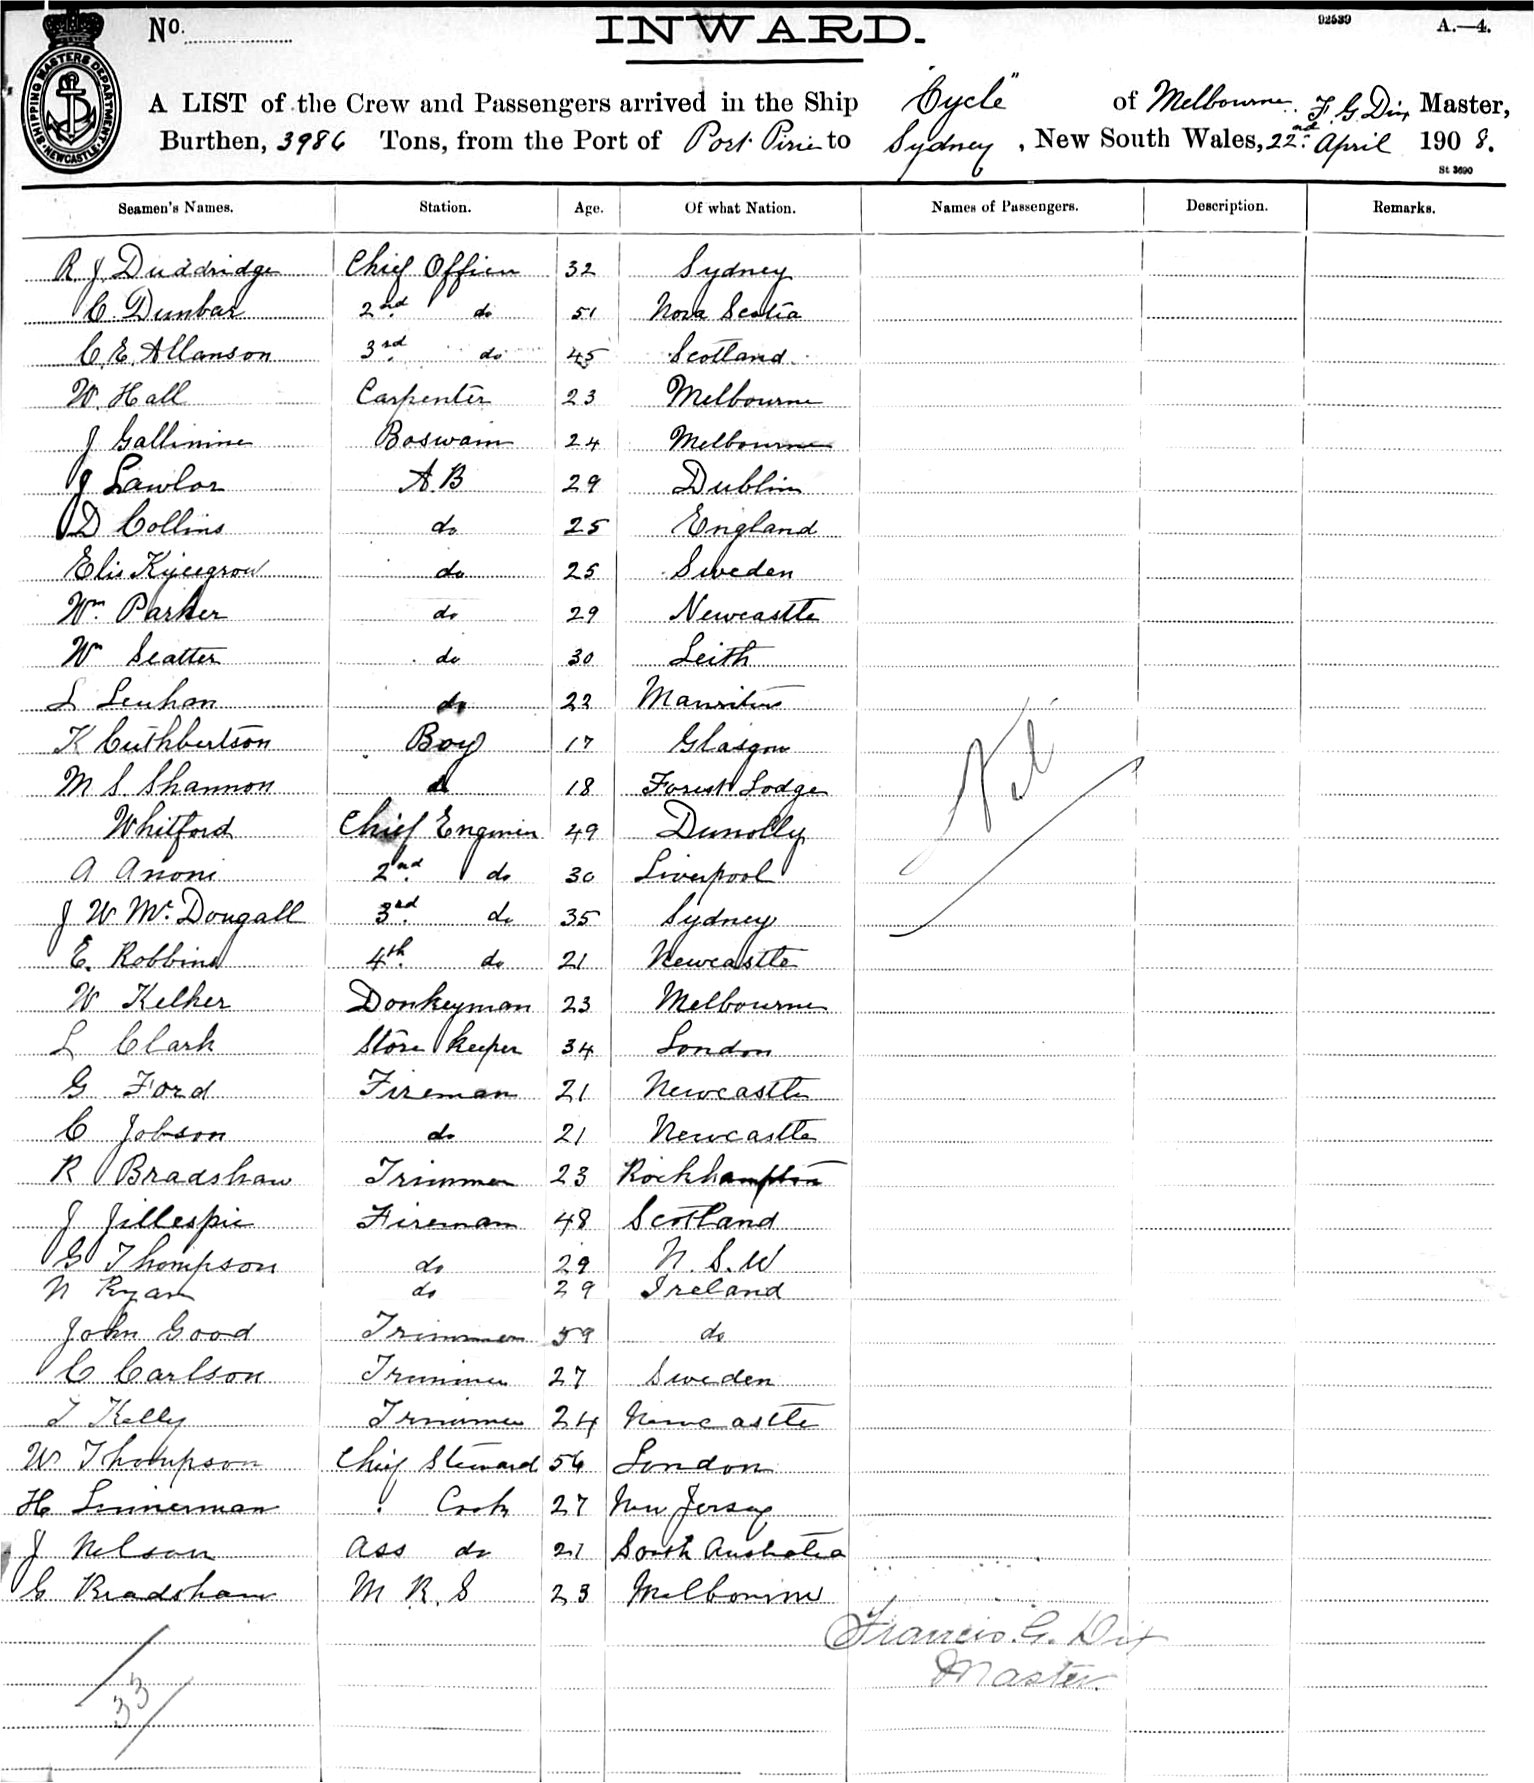 No. INWARD. 92539 A.—4.
SHIPPING MASTERS DEPARTMENT NEWCASTLE
A LIST of the Crew and Passengers arrived in the Ship "Cycle" of Melbourne. F. G Dix Master,
Burthen, 3986 Tons, from the Port of Port Pirie to Sydney, New South Wales, 22nd April 1908.
St 3690
Seamen's Names. Station. Age. Of what Nation. Names of Passengers. Description. Remarks.
R J Duddridge Chief Officer 32 Sydney
C. Dunbar 2nd do 51 Nova Scotia
C. E. Allanson 3rd do 45 Scotland
W. Hall Carpenter 23 Melbourne
J Gallimine Boswain 24 Melbourne
J Lawlor A.B 29 Dublin
D Collins do 25 England
Elis do 25 Sweden
Wm Parker do 29 Newcastle
Wm Seatter do 30 Leith
L Lenhan do 22 Mauritius
K Cuthbertson Boy 17 Glasgow
M S Shannon do 18 Forest Lodge
Nil
Whitford Chief Engineer 49 Dunolly
A Anoni 2nd do 30 Liverpool
J W McDougall 3rd do 35 Sydney
E. Robbins 4th do 21 Newcastle
W Kelher Donkeyman 23 Melbourne
L Clark Store Keeper 34 London
G Ford Fireman 21 Newcastle
C Jobson do 21 Newcastle
R Bradshaw Trimmer 23 Rockhampton
J Jillespie Fireman 48 Scotland
G Thompson do 29 N.S.W
N Ryan do 29 Ireland
John Good Trimmer 59 do
C Carlson Trimmer 27 Sweden
T Kelly Trimmer 24 Newcastle
W Thompson Chief Steward 56 London
H Linnerman Cook 27 New Jersey
J Nelson Ass do 21 South Australia
G Bradshaw M.R.S 23 Melbourne
Francis. G. Dix
Master.
33